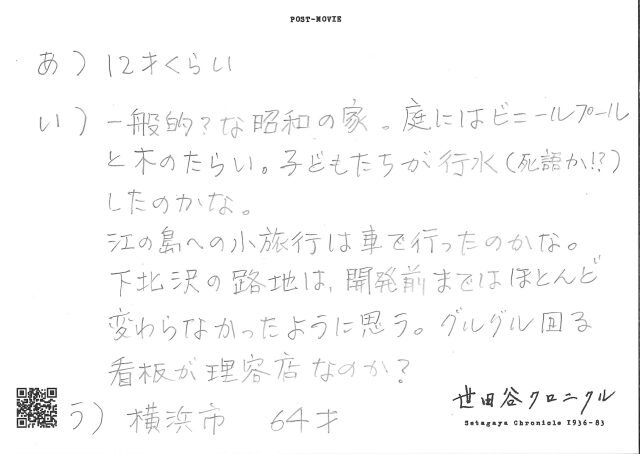 POST-MOVIE
あ) 12才くらい
い) 一般的?な昭和の家。庭にはビニールプール
と木のたらい。子どもたちが行水(死語か!?)
したのかな。
江の島への小旅行は車で行ったのかな。
下北沢の路地は、開発前まではほとんど
変わらなかったように思う。グルグル回る
看板が理容店なのか?
う) 横浜市 64才
世田谷クロニクル
Setagaya Chronicle 1936-83